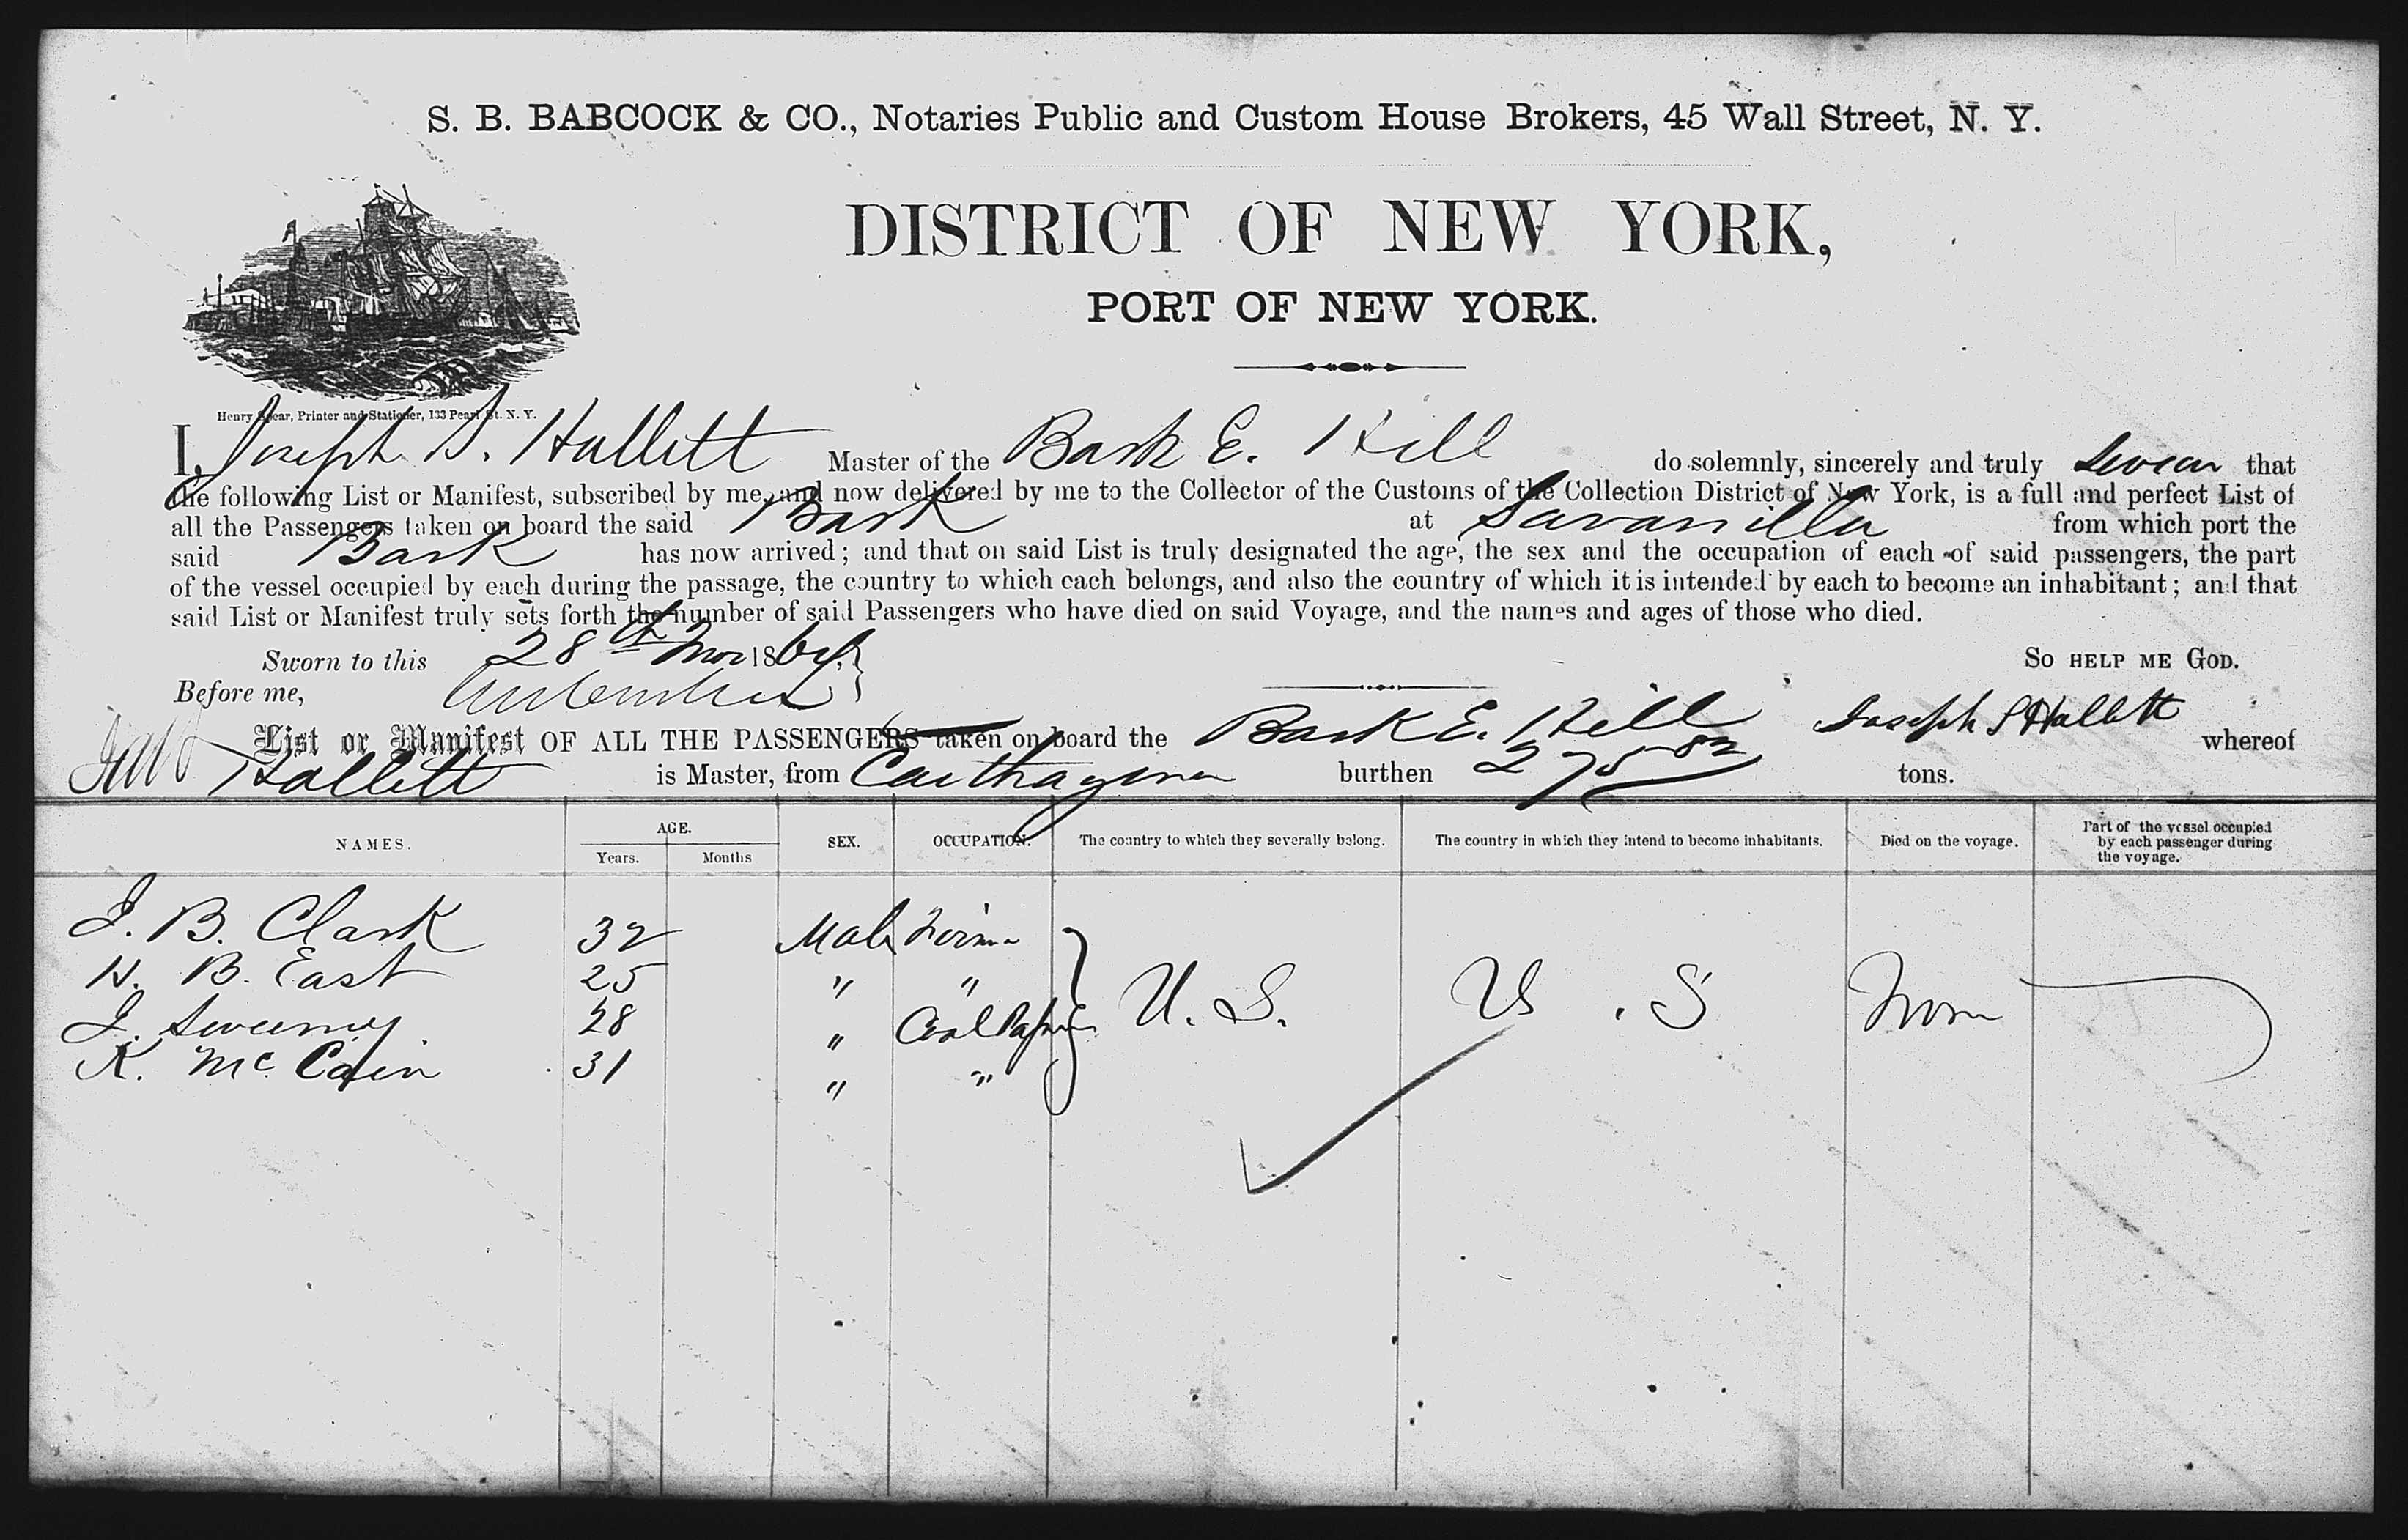 S. B. BABCOCK & CO., Notaries Public and Custom House Brokers, 45 Wall Street, N. Y.
DISTRICT OF NEW YORK,
PORT OF NEW YORK.
Henry Spear, Printer and Stationer, 133 Pearl St. N. Y.
I, Joseph S. Hallett Master of the Bark E. Hill do solemnly, sincerely and truly swear that
the following List or Manifest, subscribed by me, and now delivered by me to the Collector of the Customs of the Collection District of New York, is a full and perfect List of
all the Passengers taken on board the said Bark at Savanilla from which port the
said Bark has now arrived; and that on said List is truly designated the age, the sex and the occupation of each of said passengers, the part
of the vessel occupied by each during the passage, the country to which each belongs, and also the country of which it is intended by each to become an inhabitant; and that
said List or Manifest truly sets forth the number of said Passengers who have died on said Voyage, and the names and ages of those who died.
Sworn to this 28th Nov 186 SO HELP ME GOD.
Before me,
Joseph S Hallett
List or Manifest OF ALL THE PASSENGERS taken on board the Bark E. Hill whereof
Hallett is Master, from Carthagena burthen 275 82 tons.
NAMES. AGE. Years. Months SEX. OCCUPATION. The country to which they severally belong. The country in which they intend to become inhabitants. Died on the voyage. Part of the vessel occupied by each passenger during the voyage.
J. B. Clark 32 Male
H. B. East 25 " " U. S. U. S
J. Sweeney 28 " Coal
K. Mc Cain 31 " "